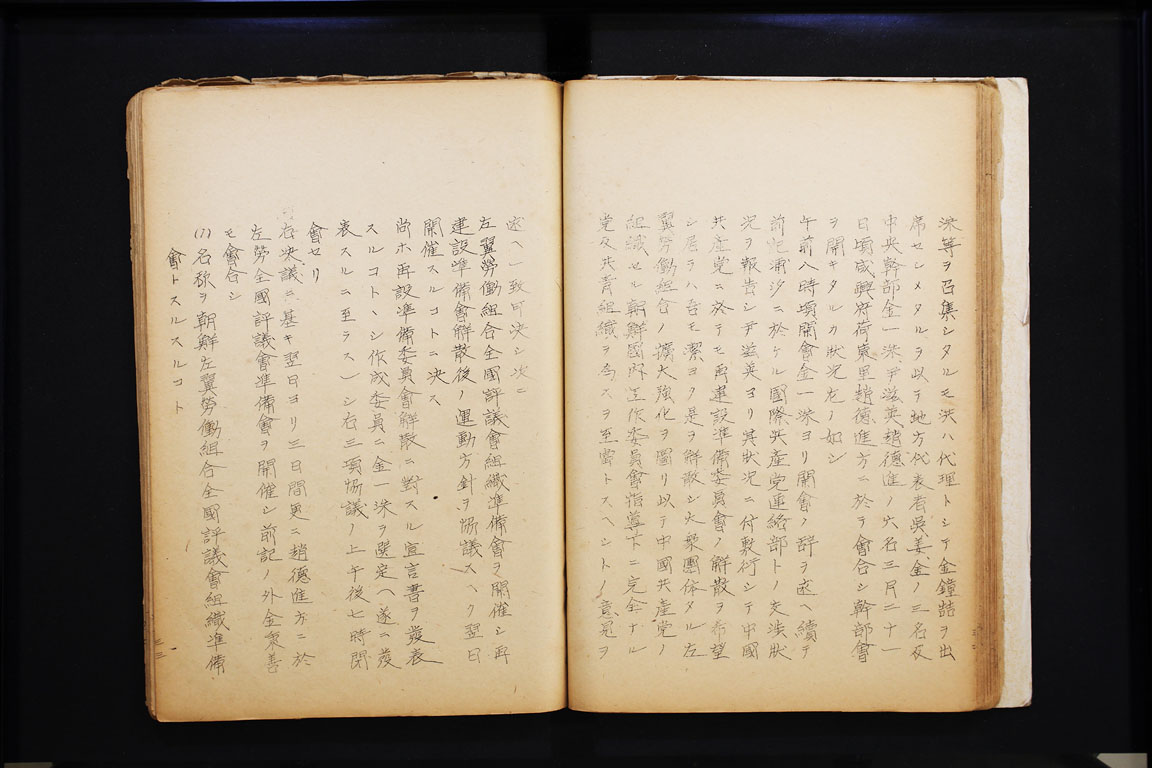 洙等ヲ召集シタルモ洪ハ代理トシテ金鐘喆ヲ出
席セシメタルヲ以テ地方代表者吳、姜、金ノ三名及
中央幹部金一洙、尹滋英、趙德進ノ六名三月二十一
日頃咸興府荷東里趙德進方ニ於テ會合シ幹部會
ヲ開キタルカ狀況左ノ如シ
午前八時頃開會金一洙ヨリ開會ノ辞ヲ述ヘ續テ
前記浦汐ニ於ケル國際共産党連絡部トノ交渉狀
況ヲ報告シ尹滋英ヨリ其狀況ニ付敷衍シテ中國
共産党ニ於テモ再建設準備委員會ノ解散ヲ希望
シ居ラハ吾モ潔ヨク是ヲ解散シ大衆團体タル左
翼勞働組合ノ擴大強化ヲ圖リ以テ中國共産党ノ
組織セル朝鮮國內工作委員會指導下ニ完全ナル
党及共青組織ヲ為スヲ至當トスヘシトノ意見ヲ
述ヘ一致可決シ次ニ
左翼勞働組合全國評議會組織準備會ヲ開催シ再
建設準備會解散後ノ運動方針ヲ協議スヘク翌日
開催スルコトニ決ス
尚ホ再設準備委員會解散ニ對スル宣言書ヲ發表
スルコトヽシ作成委員ニ金一洙ヲ選定ヘ遂ニ發
表スルニ至ラス)シ右三項協議ノ上午後七時閉
會セリ
右決議ニ基キ翌日ヨリ三日間更ニ趙德進方ニ於
左勞全國評議會準備會ヲ開催シ前記ノ外金衆善
モ會合シ
(1)名称ヲ朝鮮左翼勞働組合全國評議會組織準備
會トスルスルコト
三二
三三